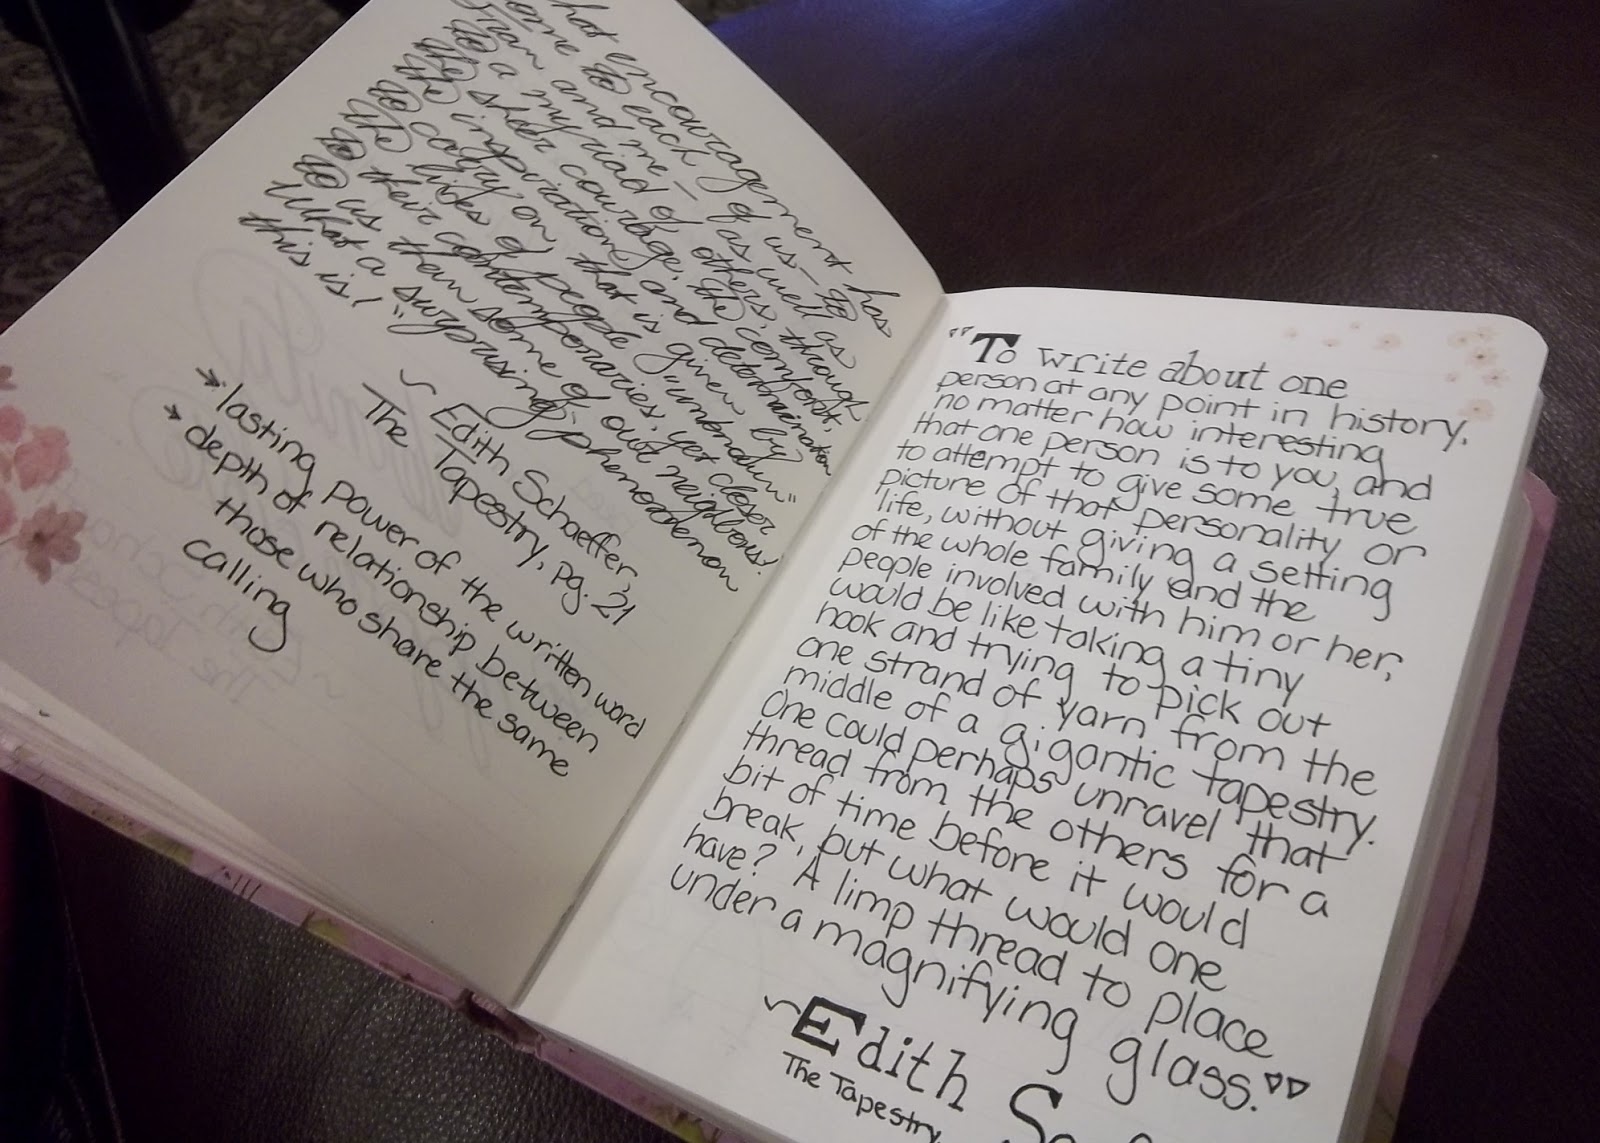 hat encouragement has
ome to each of us— to
Fran and me — as well as
to a myriad of others, through
the sheer courage, the comfort,
the inspiration, and determination
to carry on, that is given by
the lives of people "unknown"
to their contemporaries, yet closer
to us than some of our neighbors!
What a "surprising" phenomenon
this is!
~ Edith Schaeffer,
The Tapestry, pg. 21
→ lasting power of the written word
→ depth of relationship between
those who share the same
calling
"To write about one
person at any point in history,
no matter how interesting
that one person is to you, and
to attempt to give some true
picture of that personality or
life, without giving a setting
of the whole family and the
people involved with him or her,
would be like taking a tiny
hook and trying to pick out
one strand of yarn from the
middle of a gigantic tapestry.
One could perhaps unravel that
thread from the others for a
bit of time before it would
break, but what would one
have? A limp thread to place
under a magnifying glass."
~Edith
The Tapestry,